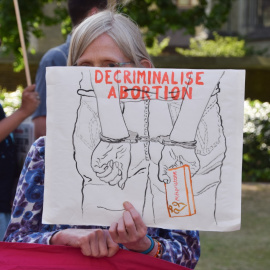 DECRIMINALISE
ABORTION